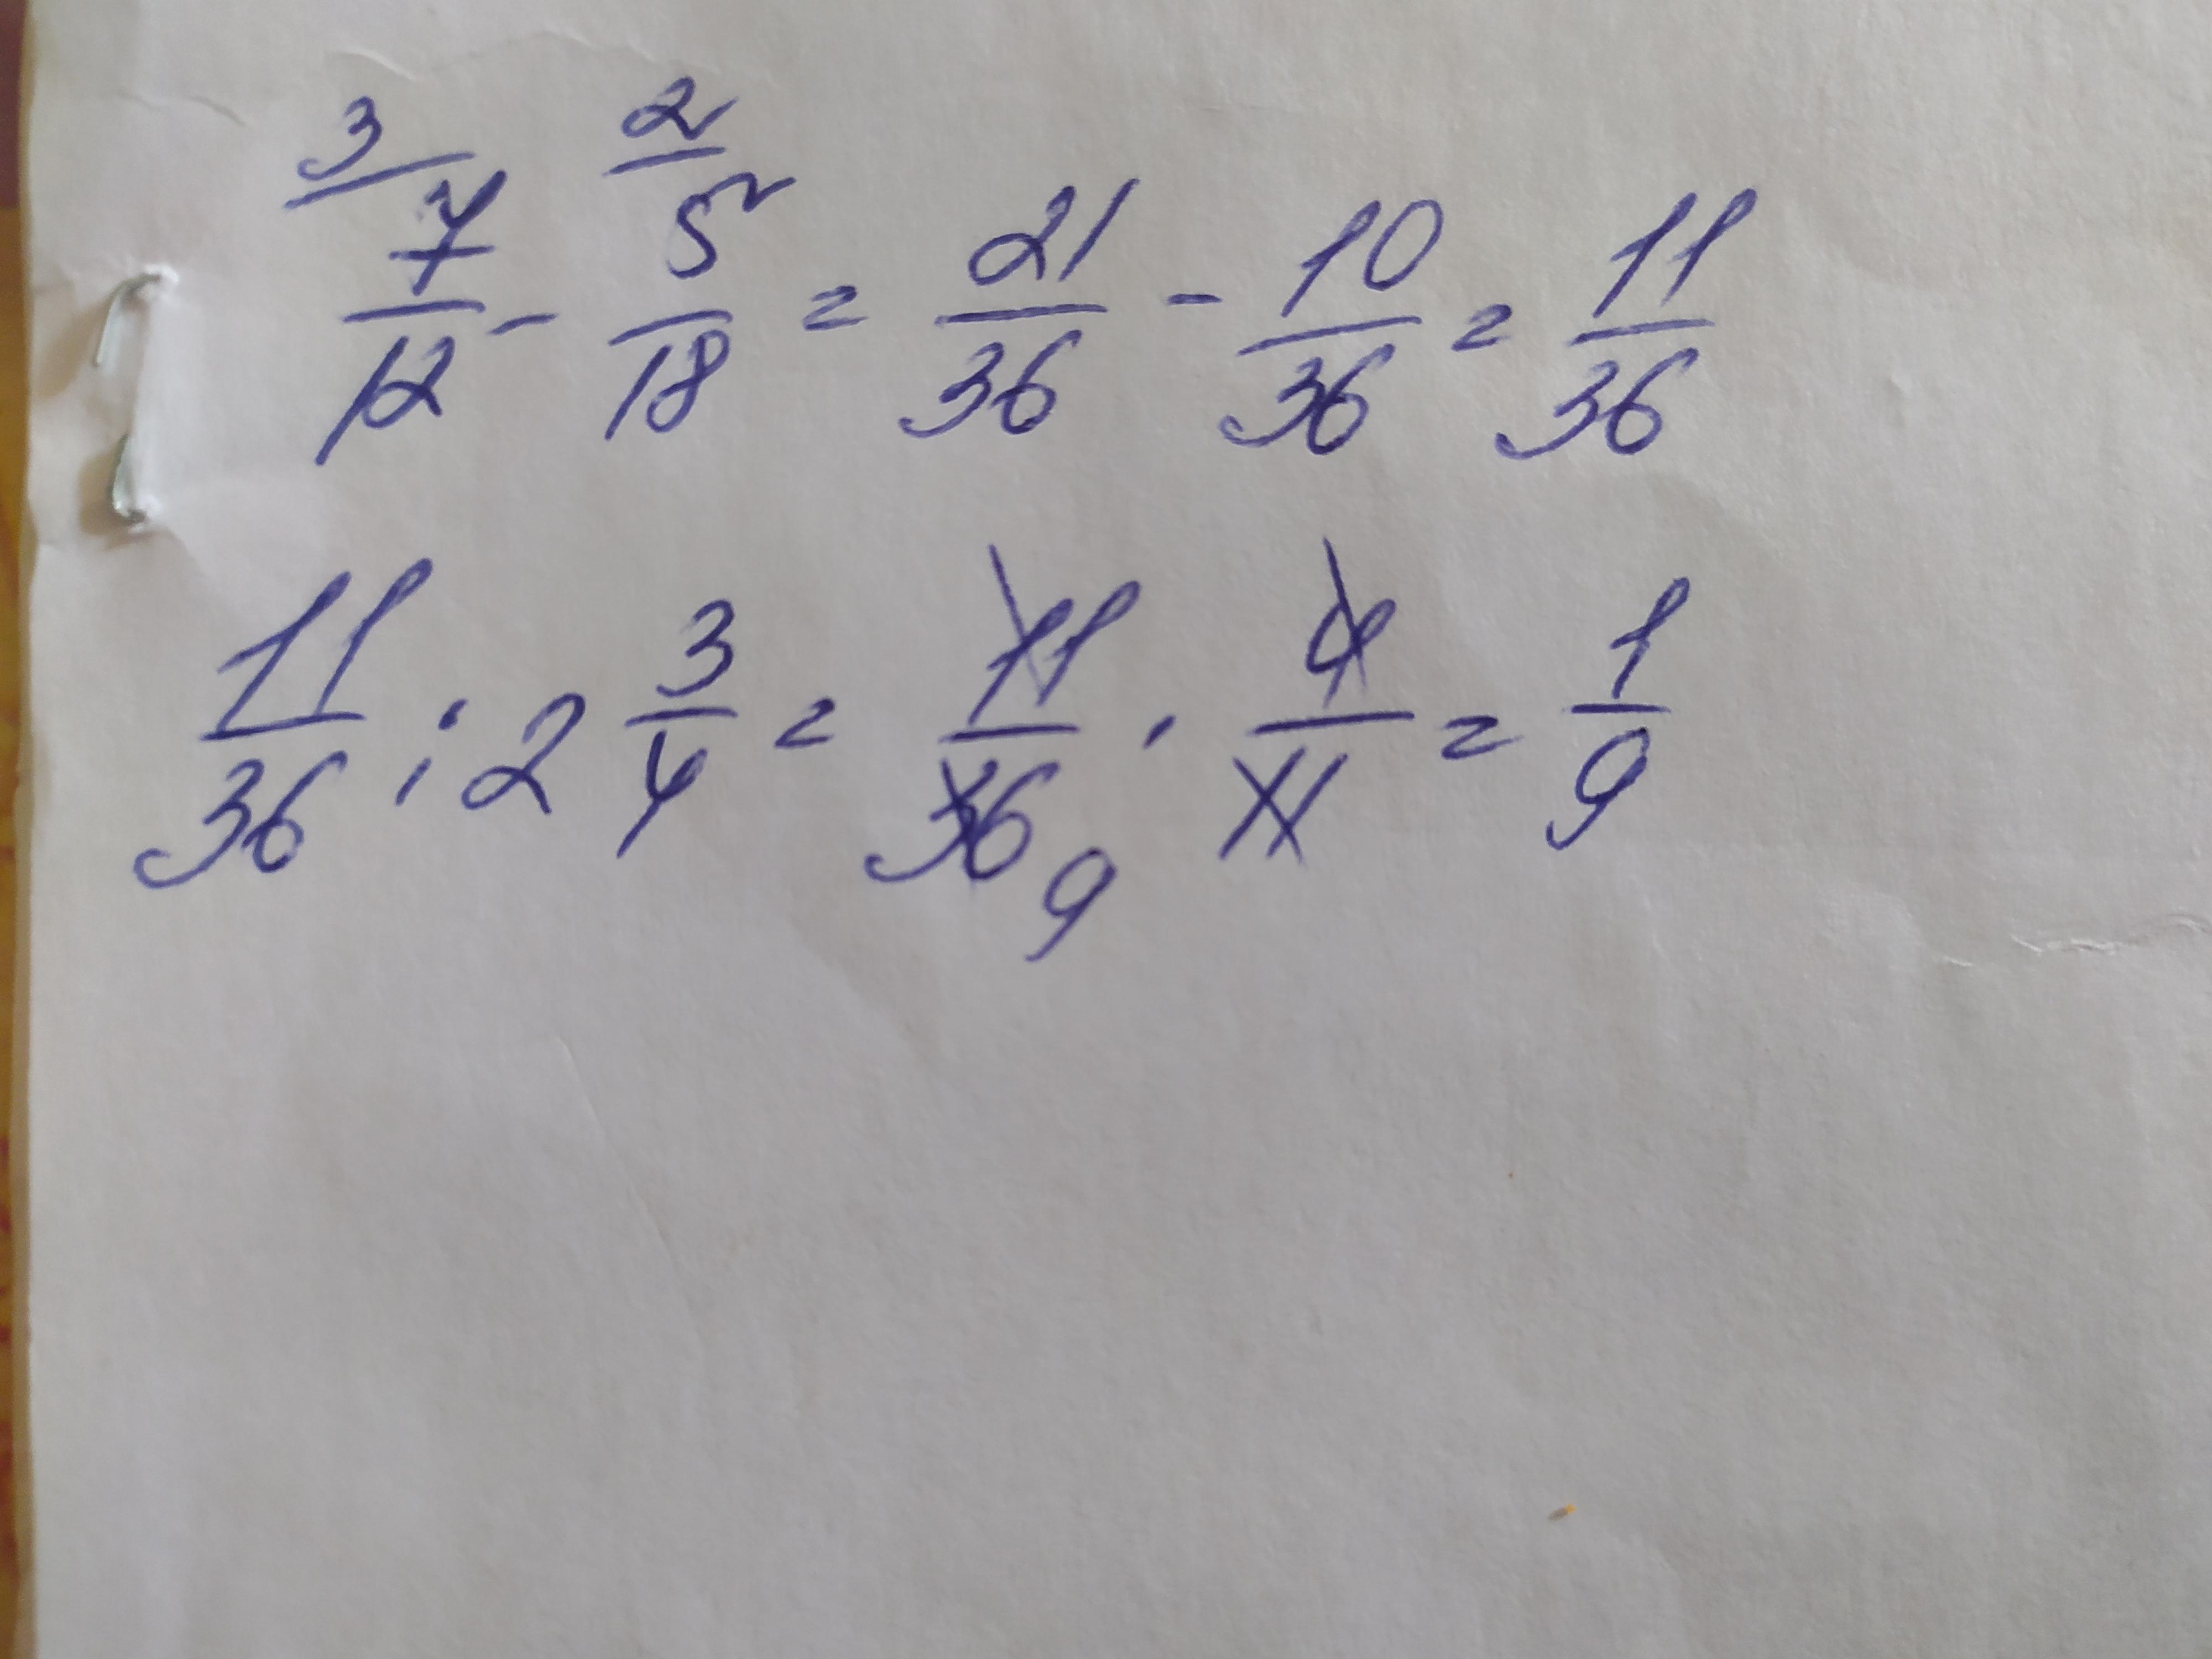 3/ 7/12 - 2/ 5/18 = 21/36 - 10/36 = 11/36
11/36 : 2 3/4 = 11/36 9 · 4/11 = 1/9